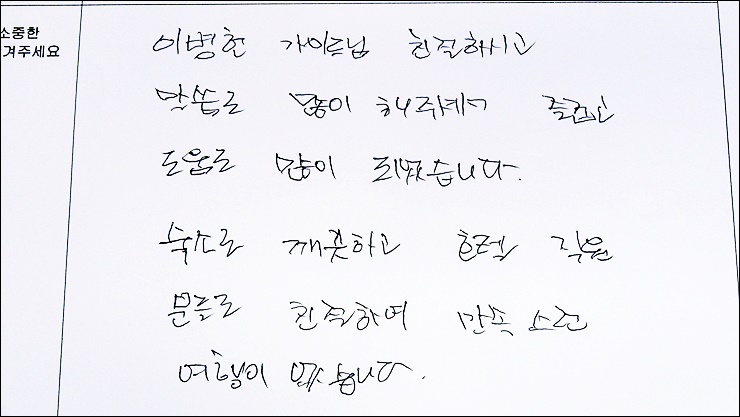 소중한
겨주세요
이병헌 가이드님 친절하시고
말씀도 많이 해주셔서 즐겁고
도움도 많이 되었습니다.
숙소도 깨끗하고 호텔 직원
분들도 친절하여 만족스런
여행이 됐습니다.